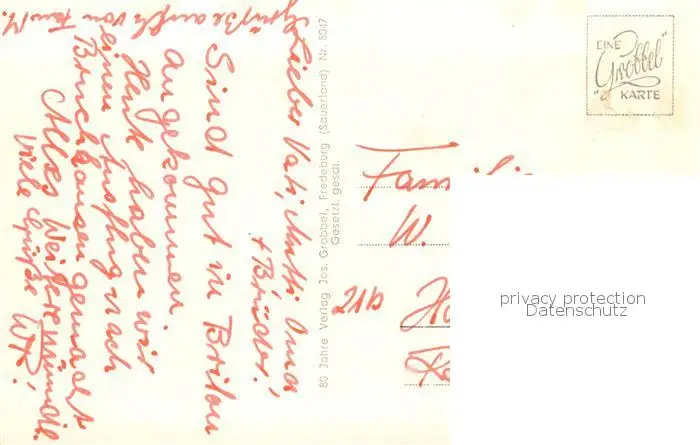 Lieber Vati, Mutti, Oma
+ Brüder!
Sind gut in Brilon
angekommen.
Heute haben wir
einen Ausflug nach
Bruchhausen gemacht
Alles Weitere mündl.
Viele Grüße
Grüße auch von
80 Jahre Verlag Jos. Grobbel, Fredeburg (Sauerland) Nr. 8047
Gesetzl. gesch.
EINE
"Grobbel"
KARTE
W.
21b
privacy protection
Datenschutz